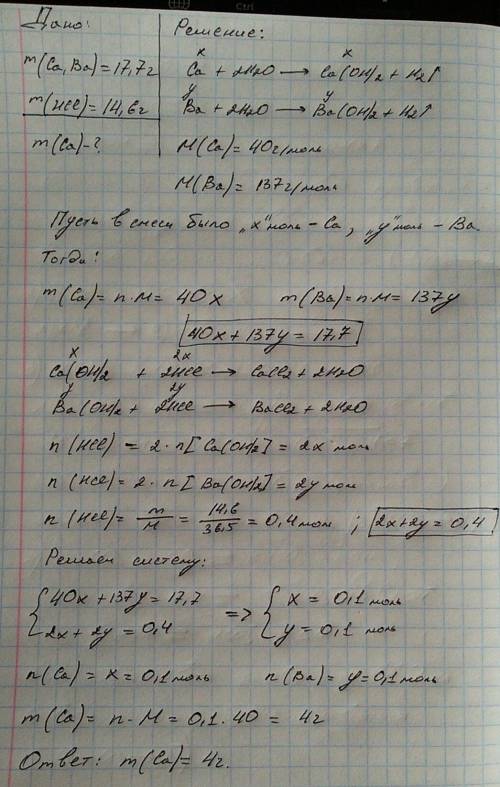 Дано:
m(Ca, Ba) = 17,7г
m(HCl) = 14,6г
m(Ca) - ?
Решение:
x x
Ca + 2H2O → Ca(OH)2 + H2↑
y y
Ba + 2H2O → Ba(OH)2 + H2↑
M(Ca) = 40г/моль
M(Ba) = 137г/моль
Пусть в смеси было „x" моль - Ca, „y" моль - Ba
Тогда:
m(Ca) = n·M = 40x m(Ba) = n·M = 137y
40x + 137y = 17,7
x 2x
Ca(OH)2 + 2HCl → CaCl2 + 2H2O
y 2y
Ba(OH)2 + 2HCl → BaCl2 + 2H2O
n(HCl) = 2·n[Ca(OH)2] = 2x моль
n(HCl) = 2·n[Ba(OH)2] = 2y моль
n(HCl) = m/M = 14,6/36,5 = 0,4 моль ; 2x+2y = 0,4
Решаем систему:
{40x + 137y = 17,7 => {x = 0,1 моль
2x + 2y = 0,4 y = 0,1 моль
n(Ca) = x = 0,1 моль n(Ba) = y = 0,1 моль
m(Ca) = n·M = 0,1·40 = 4г
Ответ: m(Ca) = 4г.